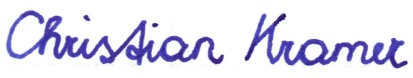 Christian Kramer